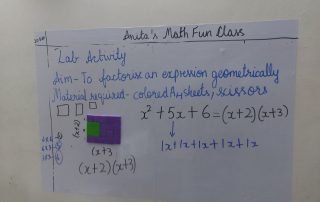 Anita's Math Fun Class
Lab Activity
Aim - To factorise an expression geometrically
Material required - colored A4 sheets, scissors
x² + 5x + 6 = (x+2)(x+3)
1x+1x+1x+1x+1x
(x+2)
(x+3
(x+2)(x+3)